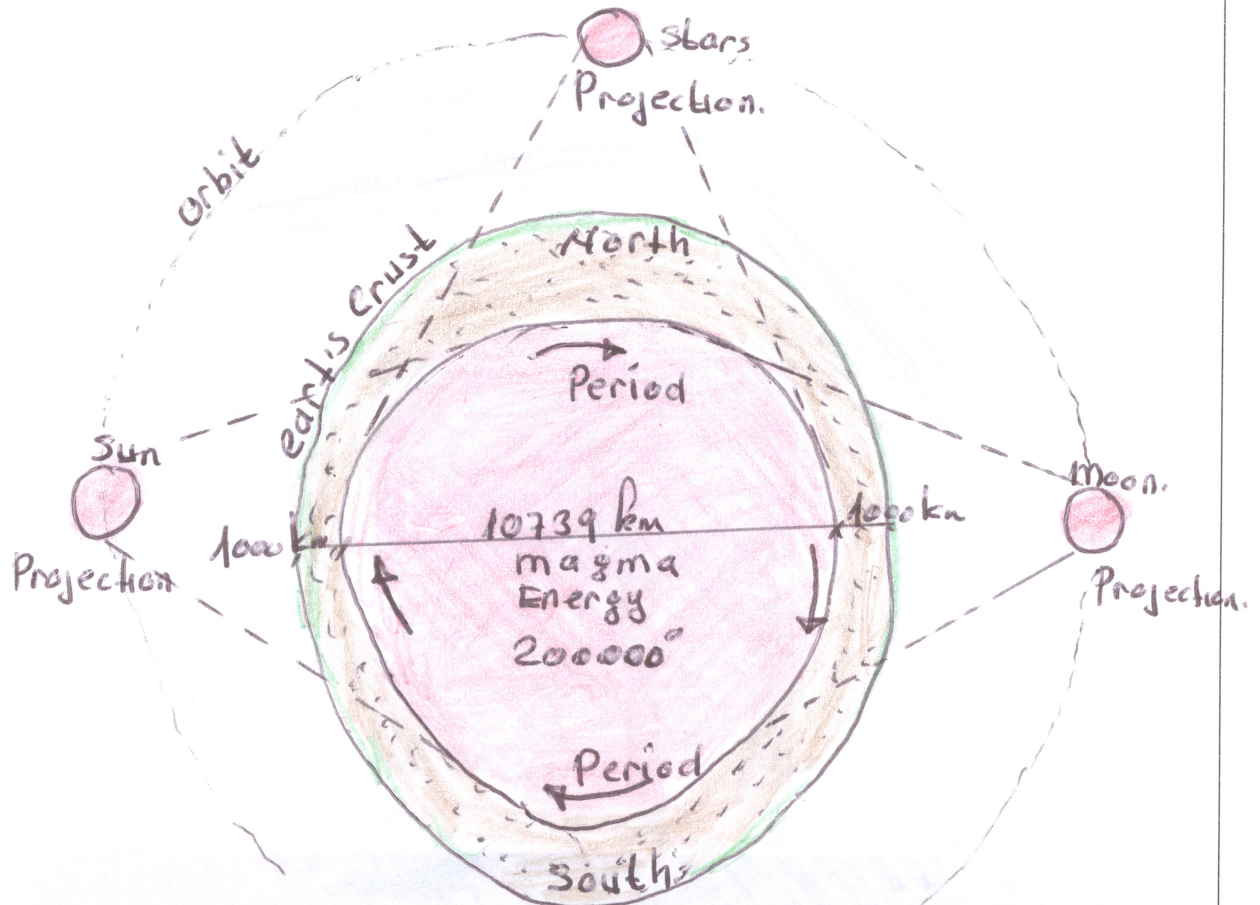 Stars
Projection.
orbit
eartis Crust
North
Period
Sun
Moon.
1000 km
10739 km
1000 km
magma
Energy
200000°
Projection
Projection.
Period
South